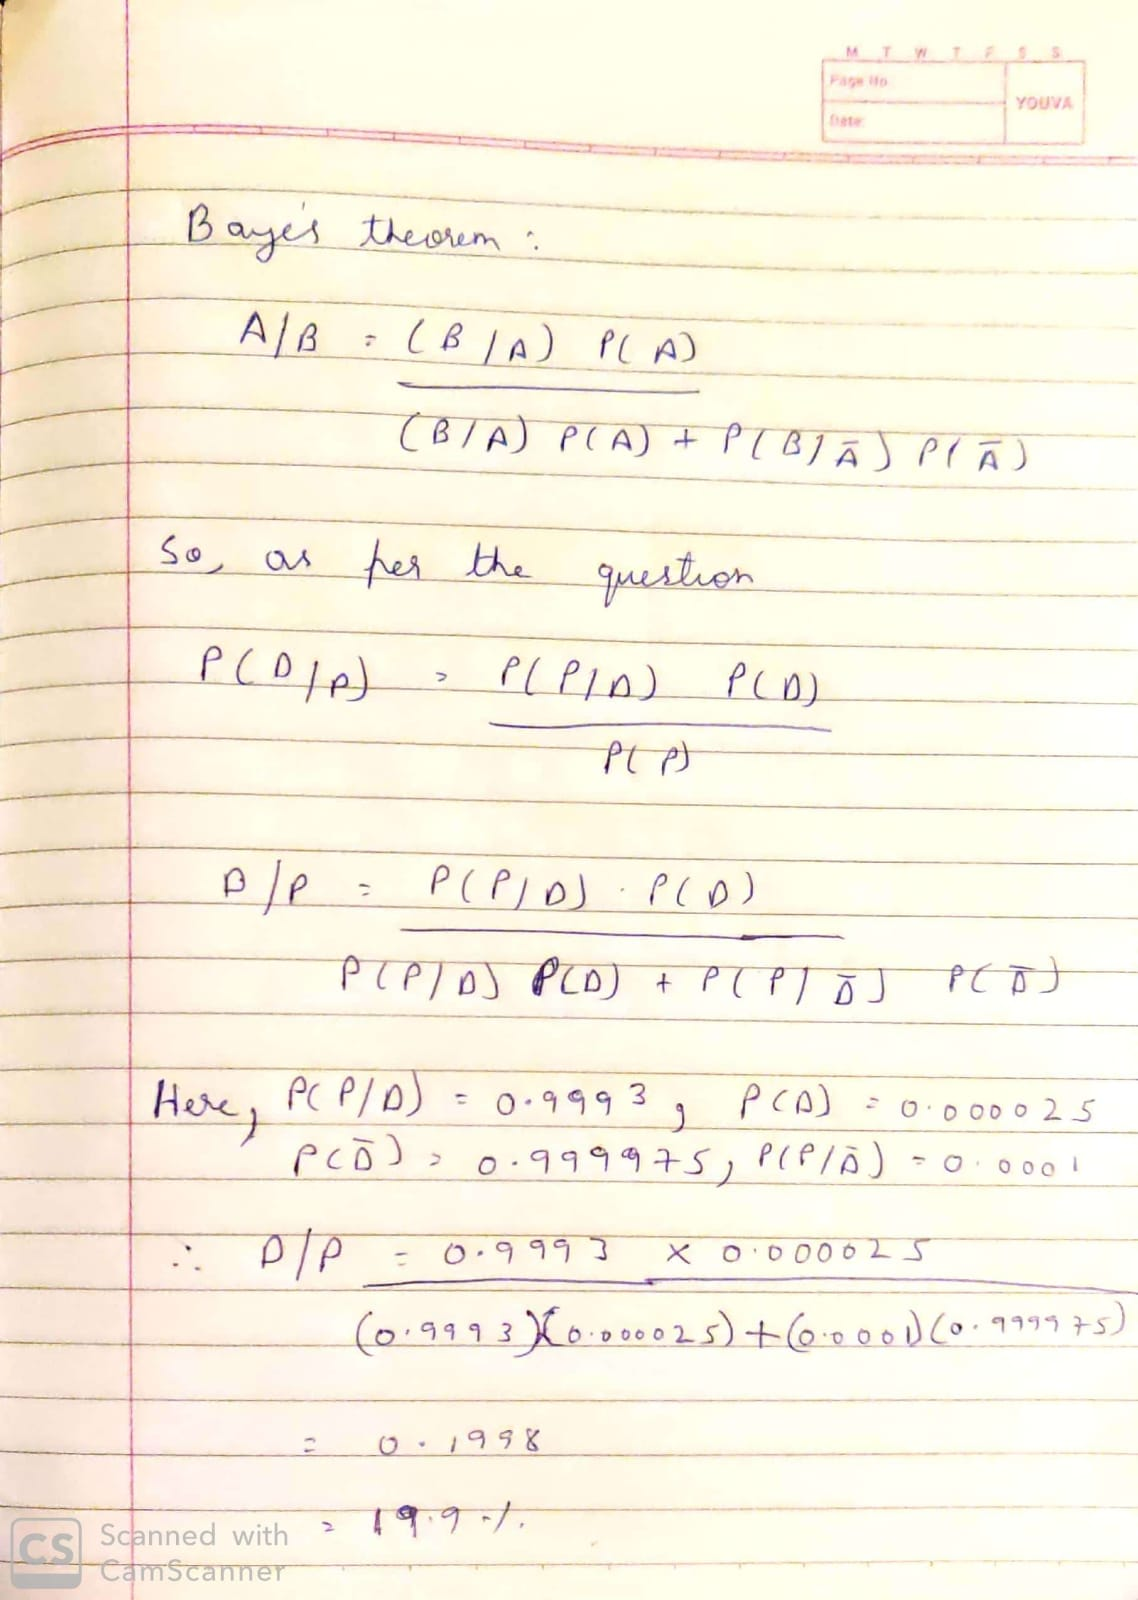 M T W T F S S
Page No.
YOUVA
Date:
Baye's theorem :
A/B = (B/A) P(A)
(B/A) P(A) + P(B/Ā) P(Ā)
So, as per the question
P(D/P) = P(P/D) P(D)
P(P)
D/P = P(P/D) . P(D)
P(P/D) P(D) + P(P/D̄) P(D̄)
Here, P(P/D) = 0.9993, P(D) = 0.000025
P(D̄) = 0.999975, P(P/D̄) = 0.0001
∴ D/P = 0.9993 x 0.000025
(0.9993)(0.000025)+(0.0001)(0.999975)
= 0.1998
= 19.9 %.
CS Scanned with
CamScanner